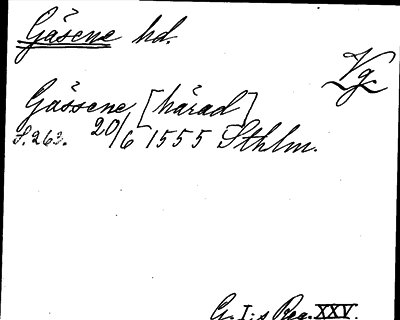 Gäsene hd.
Vg.
Gässene [härad]
S. 263. 20/6 1555 Sthlm.
G. I:s Reg. XXV.